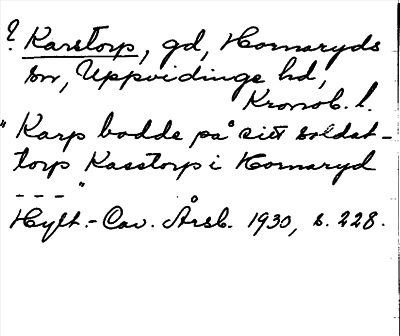 ? Karstorp, gd, Homaryds
sn, Uppvidinge hd,
Kronob. l.
"Karp bodde på sitt soldat-
torp Kasstorp i Homaryd
- - - "
Hylt.-Cav. Årsb. 1930, s. 228.